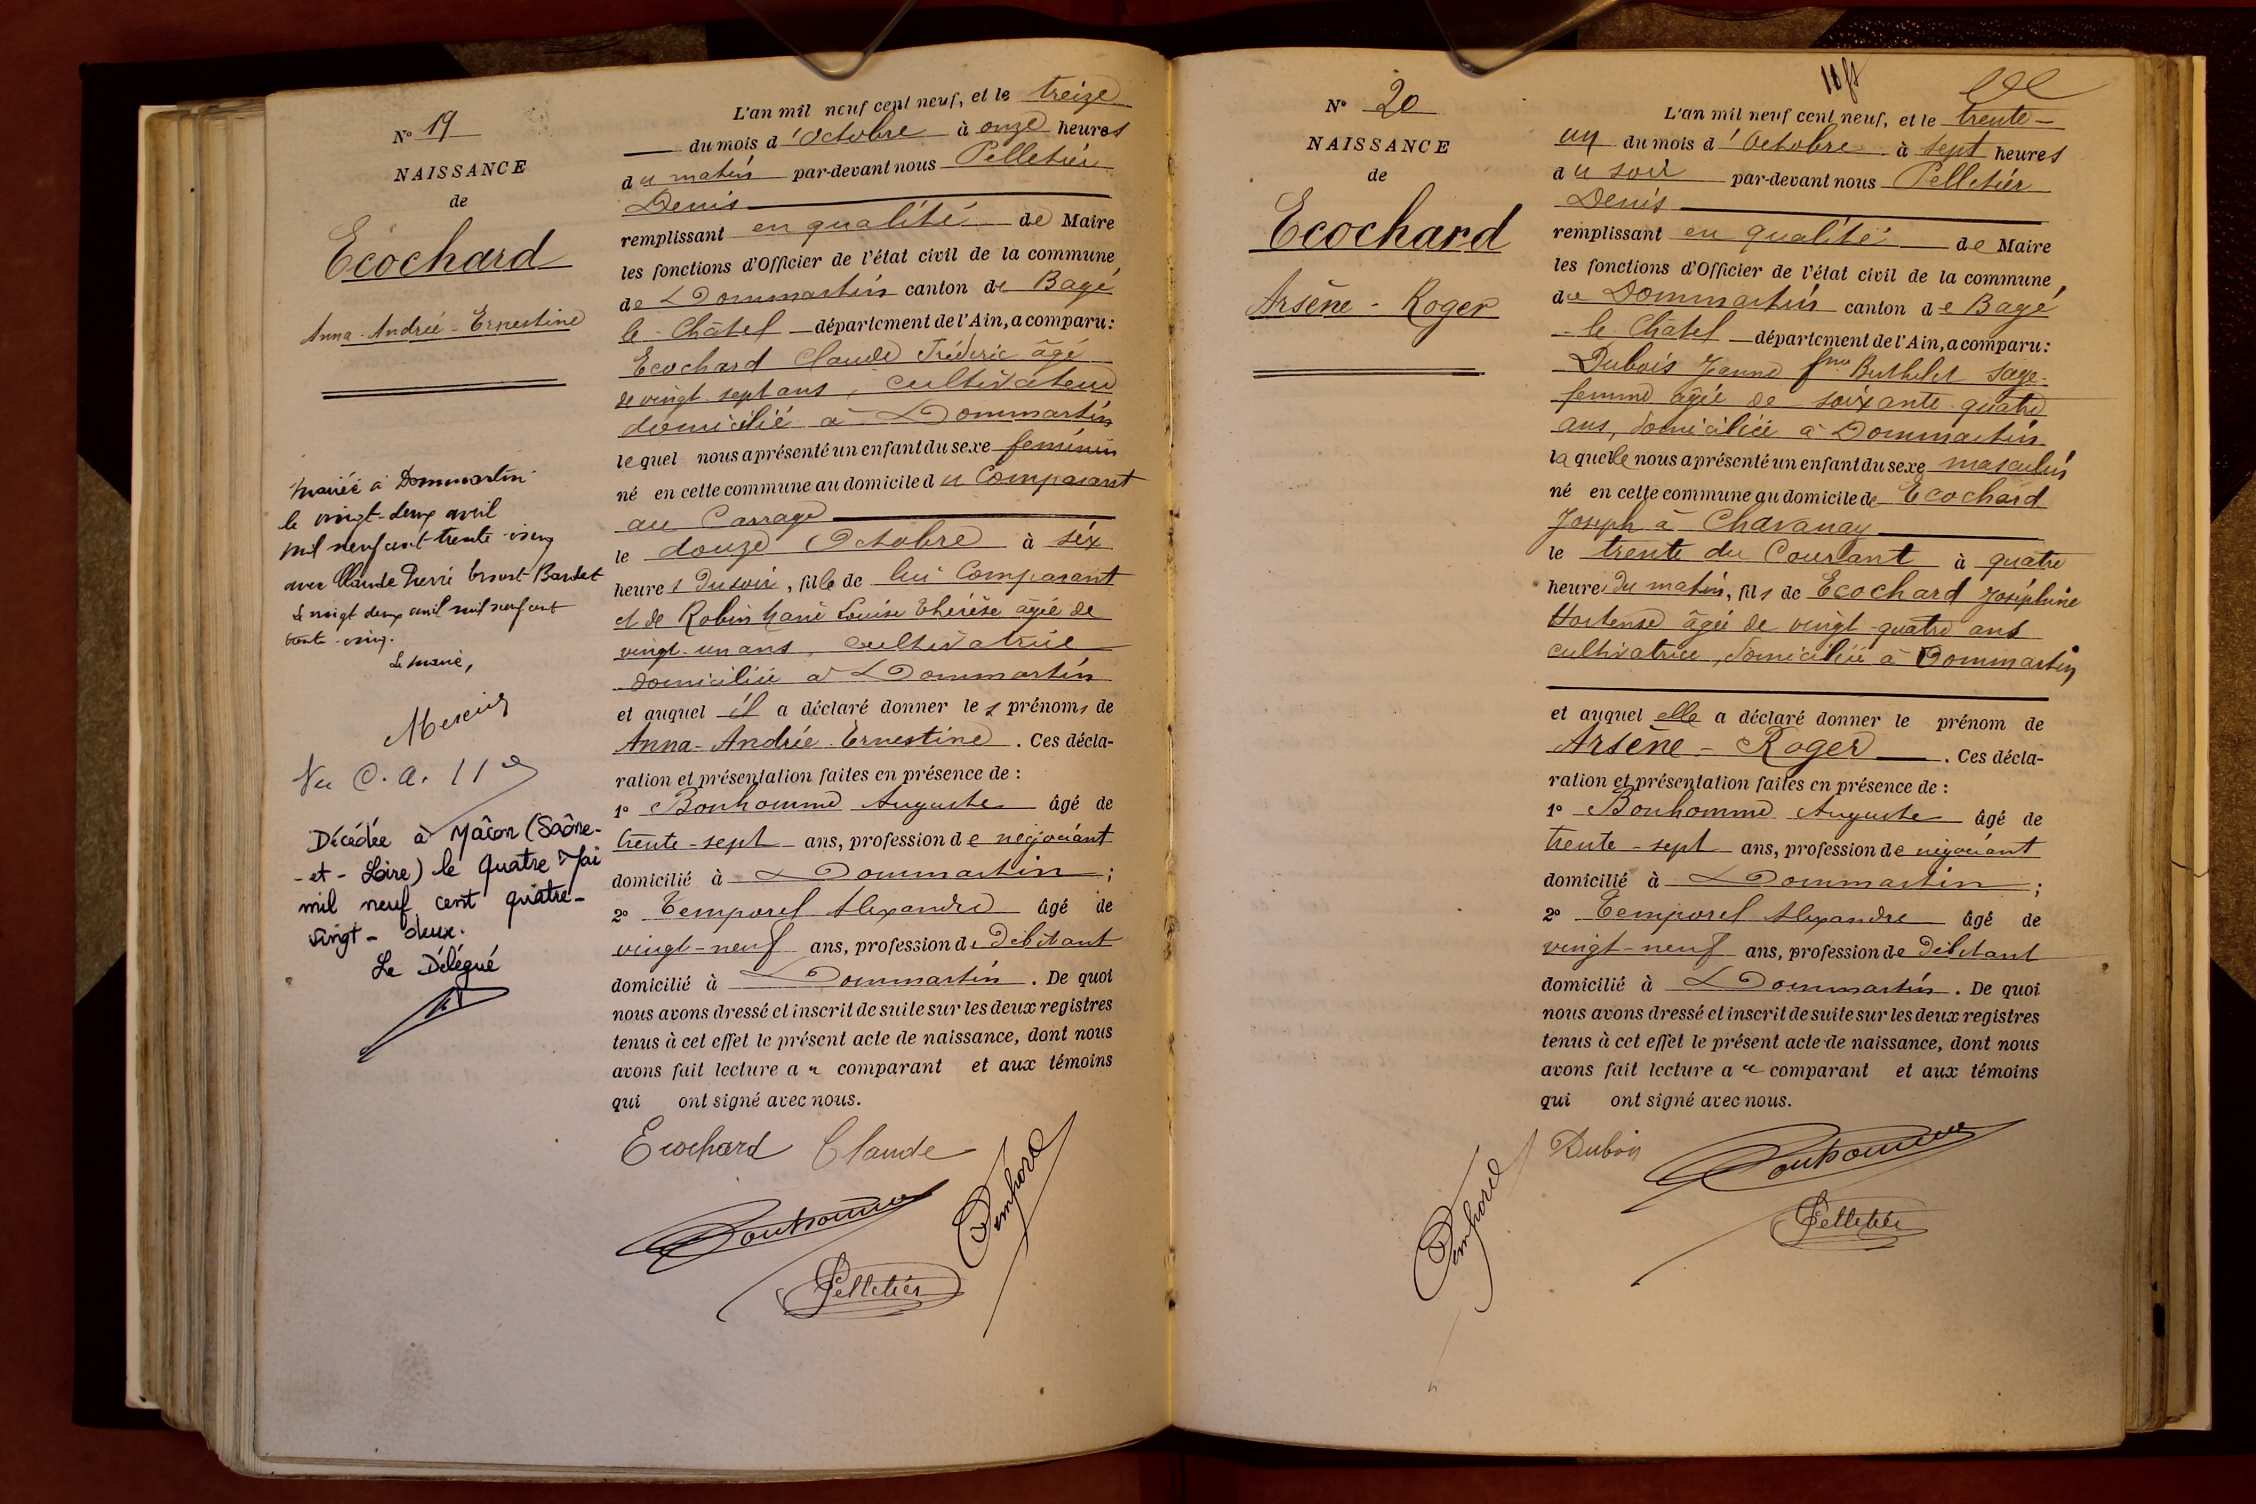 N° 19
NAISSANCE
de
Ecochard
Anna - Andrée - Ernestine
Mariée à Dommartin
le vingt-deux avril
mil neuf cent trente cinq
avec Claude Pierre Ernest Bardet
Le vingt deux avril mil neuf cent
trente cinq.
Le maire,
Vu C. A. 11
Décédée à Mâcon (Saône-
-et-Loire) le quatre Mai
mil neuf cent quatre-
vingt-deux.
Le Délégué
L'an mil neuf cent neuf, et le treize
du mois d'Octobre à onze heures
du matin par-devant nous Pelletier
Denis
remplissant en qualité de Maire
les fonctions d'Officier de l'état civil de la commune
de Dommartin canton de Bagé
le-Châtel département de l'Ain, a comparu:
Ecochard Claude Fréderic âgé
de vingt-sept ans, cultivateur
domicilié à Dommartin
lequel nous a présenté un enfant du sexe feminin
né en cette commune au domicile du Comparant
au Carrage
le douze Octobre à six
heures du soir, fille de lui Comparant
et de Robin Marie Louise Thérèse âgée de
vingt-un ans, cultivatrice
domiciliée à Dommartin
et auquel il a déclaré donner les prénoms de
Anna-Andrée-Ernestine. Ces décla-
ration et présentation faites en présence de :
1° Bonhomme Auguste âgé de
trente-sept ans, profession de négociant
domicilié à Dommartin ;
2° Temporel Alexandre âgé de
vingt-neuf ans, profession de Débitant
domicilié à Dommartin. De quoi
nous avons dressé et inscrit de suite sur les deux registres
tenus à cet effet le présent acte de naissance, dont nous
avons fait lecture au comparant et aux témoins
qui ont signé avec nous.
Ecochard Claude
Bonhomme
Temporel
Pelletier
N° 20
NAISSANCE
de
Ecochard
Arsène - Roger
L'an mil neuf cent neuf, et le trente-
un du mois d'Octobre à sept heures
du soir par-devant nous Pelletier
Denis
remplissant en qualité de Maire
les fonctions d'Officier de l'état civil de la commune
de Dommartin canton de Bagé
-le-Châtel département de l'Ain, a comparu:
Dubois Jeanne fme Buthelet sage-
femme âgée de soixante-quatre
ans, domiciliée à Dommartin
laquelle nous a présenté un enfant du sexe masculin
né en cette commune au domicile de Ecochard
Joseph à Chavanay
le trente du Courant à quatre
heures du matin, fils de Ecochard Joséphine
Hortense âgée de vingt-quatre ans
cultivatrice, domiciliée à Dommartin
et auquel elle a déclaré donner le prénom de
Arsène - Roger. Ces décla-
ration et présentation faites en présence de :
1° Bonhomme Auguste âgé de
trente-sept ans, profession de négociant
domicilié à Dommartin ;
2° Temporel Alexandre âgé de
vingt-neuf ans, profession de Débitant
domicilié à Dommartin. De quoi
nous avons dressé et inscrit de suite sur les deux registres
tenus à cet effet le présent acte de naissance, dont nous
avons fait lecture au comparant et aux témoins
qui ont signé avec nous.
Dubois
Bonhomme
Temporel
Pelletier